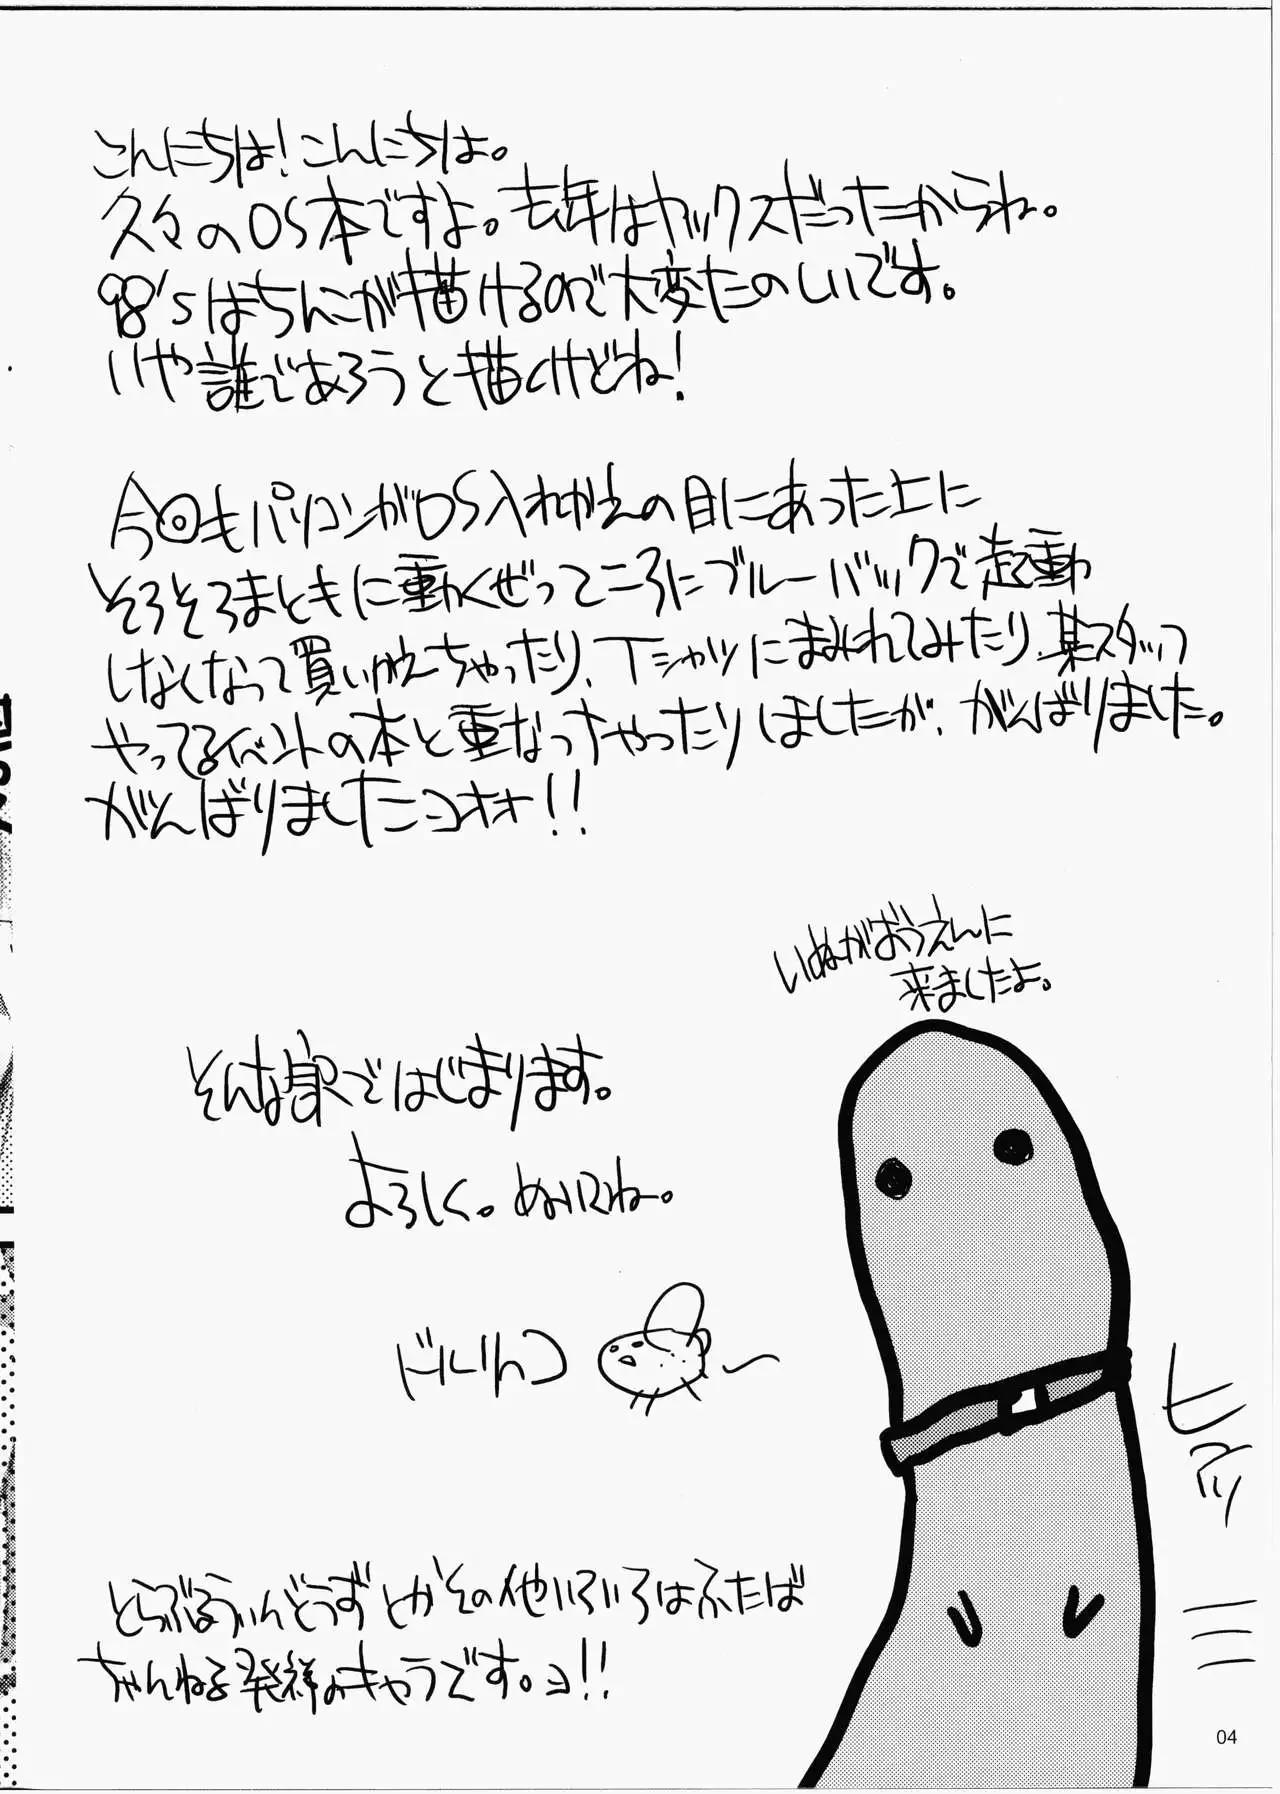 こんにちは！こんにちは。
久々のOS本ですよ。去年はヤックスだったからね。
98'sはちんこが描けるので大変たのしいです。
いや誰であろうと描くけどね！
今回もパソコンがOS入れかえの目にあった上に
そろそろまともに動くぜってころにブルーバックで起動
しなくなって買いかえちゃったり、Tシャツにまみれてみたり、某スタッフ
やってるイベントの本と重なっちゃったりしましたが、がんばりました。
がんばりましたニョオオ！！
いぬがおうえんに
来ましたよ。
そんな訳ではじまります。
よろしく。ぬいにね。
ドルリヘコ
ヒアッ
とらぶるうぃんどうずとかその他いろいろはふたば
ちゃんねる発祥のキャラです。ヨ！！
04